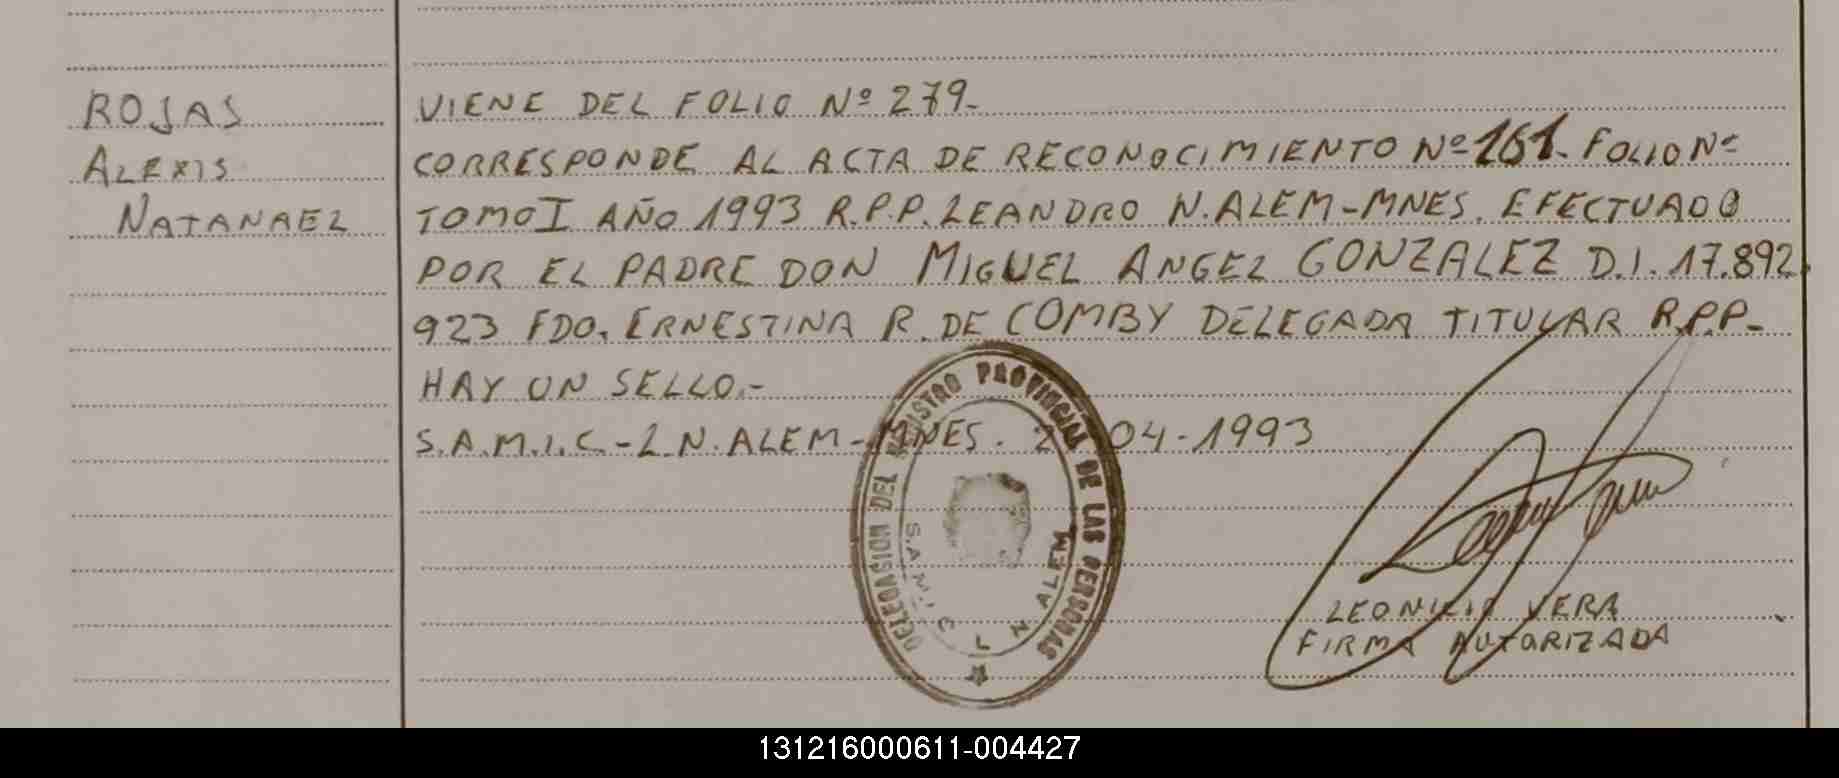 ROJAS
ALEXIS
NATANAEL
VIENE DEL FOLIO Nº 279.-
CORRESPONDE AL ACTA DE RECONOCIMIENTO Nº 161. FOLIO Nº
TOMO I AÑO 1993 R.P.P. LEANDRO N. ALEM-MNES. EFECTUADO
POR EL PADRE DON MIGUEL ANGEL GONZALEZ D.I. 17.892.
923 FDO. ERNESTINA R. DE COMBY DELEGADA TITULAR R.P.P.-
HAY UN SELLO.-
S.A.M.I.C.-L.N. ALEM-MNES. 04-1993
DELEGASION DEL REGISTRO PROVINCIAL DE LAS PERSONAS
S.A.M.I.C L N ALEM
VERA
FIRMA AUTORIZADA
131216000611-004427